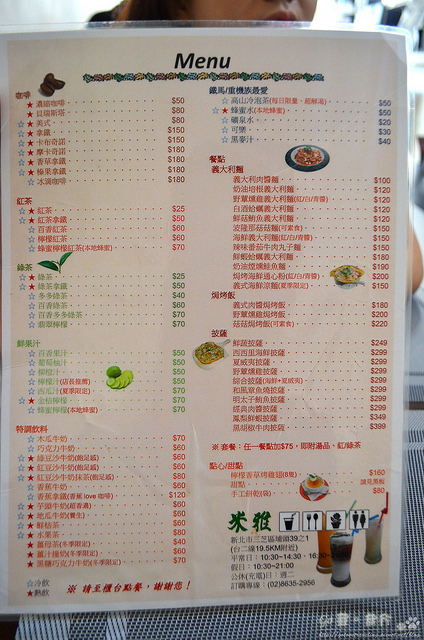 Menu
咖啡
★ 濃縮咖啡 $50
★ 貝瑞斯塔 $80
☆★ 美式 $80
☆★ 拿鐵 $150
☆★ 卡布奇諾 $150
☆★ 摩卡奇諾 $180
☆★ 香草拿鐵 $180
☆★ 榛果拿鐵 $180
☆ 冰滴咖啡 $180
紅茶
☆★ 紅茶 $25
☆★ 紅茶拿鐵 $50
☆ 百香紅茶 $60
☆ 檸檬紅茶 $60
☆★ 蜂蜜檸檬紅茶(本地蜂蜜) $70
綠茶
☆★ 綠茶 $25
☆★ 綠茶拿鐵 $50
☆ 多多綠茶 $40
☆ 百香綠茶 $60
☆ 百香多多綠茶 $70
☆ 翡翠檸檬 $70
鮮果汁
☆ 百香果汁 $50
☆ 葡萄柚汁 $50
☆ 柳橙汁 $50
☆ 檸檬汁(店長推薦) $50
☆ 西瓜汁(夏季限定) $50
☆★ 金桔檸檬 $70
☆ 蜂蜜檸檬(本地蜂蜜) $70
特調飲料
☆ 木瓜牛奶 $70
☆ 巧克力牛奶 $60
☆★ 綠豆沙牛奶(飽足感) $60
☆★ 紅豆沙牛奶(飽足感) $60
☆★ 紅豆沙牛奶抹茶(飽足感) $80
☆ 香蕉牛奶 $60
☆ 香蕉拿鐵(香蕉 love 咖啡) $120
☆★ 芋頭牛奶(超香濃) $60
☆★ 地瓜牛奶(養生) $60
☆★ 鮮桔茶 $60
☆★ 水果茶 $80
★ 薑母茶(冬季限定) $40
★ 薑汁撞奶(冬季限定) $60
★ 黑糖巧克力牛奶(冬季限定) $70
☆冷飲
★熱飲
※ 請至櫃台點餐，謝謝您！
鐵馬/重機族最愛
☆ 高山冷泡茶(每日限量、超解渴) $50
☆★ 蜂蜜水(本地蜂蜜) $50
☆ 礦泉水 $20
☆ 可樂 $30
☆ 黑麥汁 $40
餐點
義大利麵
義大利肉醬麵 $100
奶油培根義大利麵 $120
野蕈燻雞義大利麵(紅/白/青醬) $120
白酒蛤蠣義大利麵 $120
鮮菇鮪魚義大利麵 $120
波隆那菇菇麵(可素食) $150
海鮮義大利麵(紅/白/青醬) $150
辣味番茄牛肉丸子麵 $150
鮮蝦蛤蠣義大利麵 $180
奶油煙燻鮭魚麵 $190
焗烤海鮮通心粉(紅/白/青醬) $200
義式海鮮涼麵(夏季限定) $150
焗烤飯
義式肉醬焗烤飯 $180
野蕈燻雞焗烤飯 $200
菇菇焗烤飯(可素食) $220
披薩
鮮蔬披薩 $249
西西里海鮮披薩 $299
夏威夷披薩 $299
野蕈燻雞披薩 $299
綜合披薩(海鮮+夏威夷) $299
和風章魚燒披薩 $299
明太子鮪魚披薩 $299
經典肉醬披薩 $299
鳳梨鮮蝦披薩 $349
黑胡椒牛肉披薩 $399
※ 套餐：任一餐點加$75，即附湯品、紅/綠茶
點心/甜點
檸檬香草烤雞翅(8隻) $160
甜點 請見黑板
手工餅乾(袋) $80
米雅
新北市三芝區埔頭39之1
(台二線19.5KM附近)
平常日：10:30~14:30、16:30~
假日：10:30~21:00
公休(充電)日：週二
訂購專線：(02)8635-2956